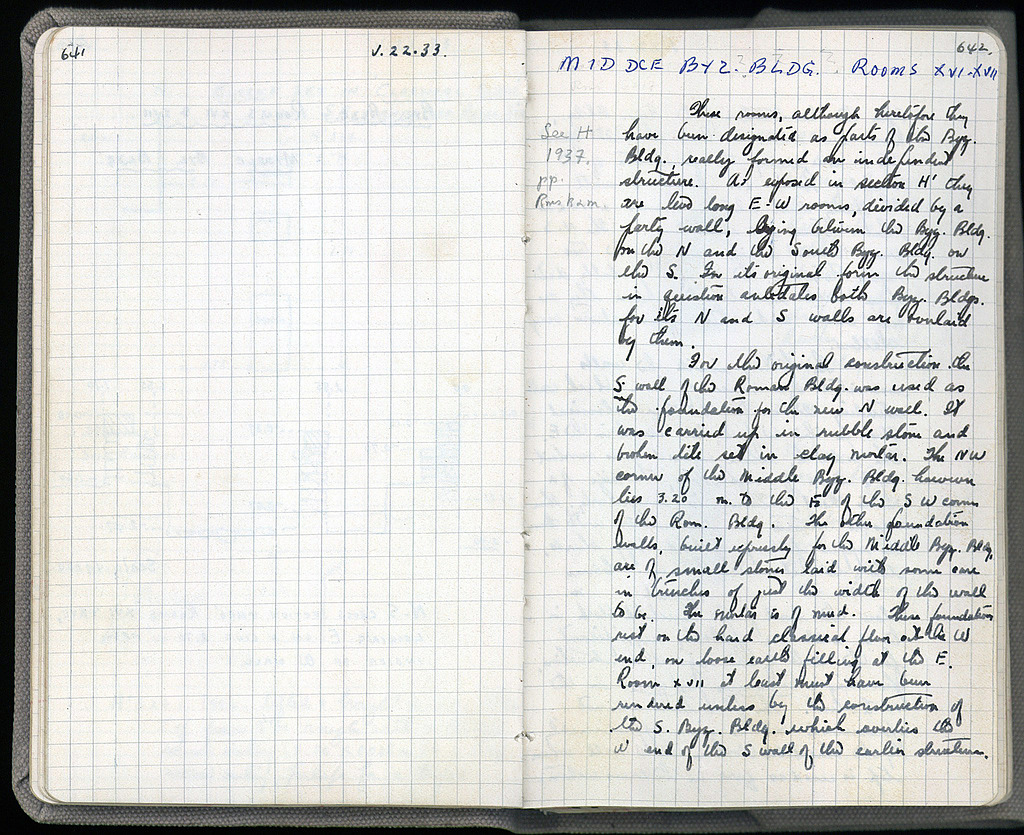 641
V.22.33.
642.
MIDDLE BYZ. BLDG. ROOMS XVI-XVII
See H
1937,
pp.
Rms B2m.
These rooms, although heretofore they
have been designated as parts of the Byz.
Bldg., really formed an independent
structure. As exposed in section H' they
are two long E-W rooms, divided by a
party wall, lying between the Byz. Bldg.
on the N and the South Byz. Bldg. on
the S. In its original form the structure
in question antedates both Byz. Bldgs.
for its N and S walls are overlaid
by them.
For the original construction the
S. wall of the Roman Bldg. was used as
the foundation for the new N wall. It
was carried up in rubble stone and
broken tile set in clay mortar. The NW
corner of the Middle Byz. Bldg. however
lies 3.20 m. to the E of the SW corner
of the Rom. Bldg. The other foundation
walls, built expressly for the Middle Byz. Bldg,
are of small stones laid with some care
in trenches of just the width of the wall
to be. The mortar is of mud. These foundations
rest on the hard classical floor at the W
end, on loose earth filling at the E.
Room XVII at least must have been
rendered useless by the construction of
the S. Byz. Bldg. which overlies the
W end of the S wall of the earlier structure.